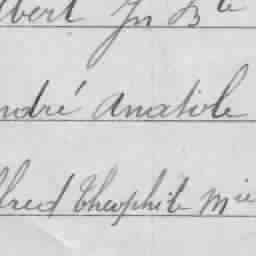 lbert Jn Bte
ndré Anatole
lfred Théophile Mie